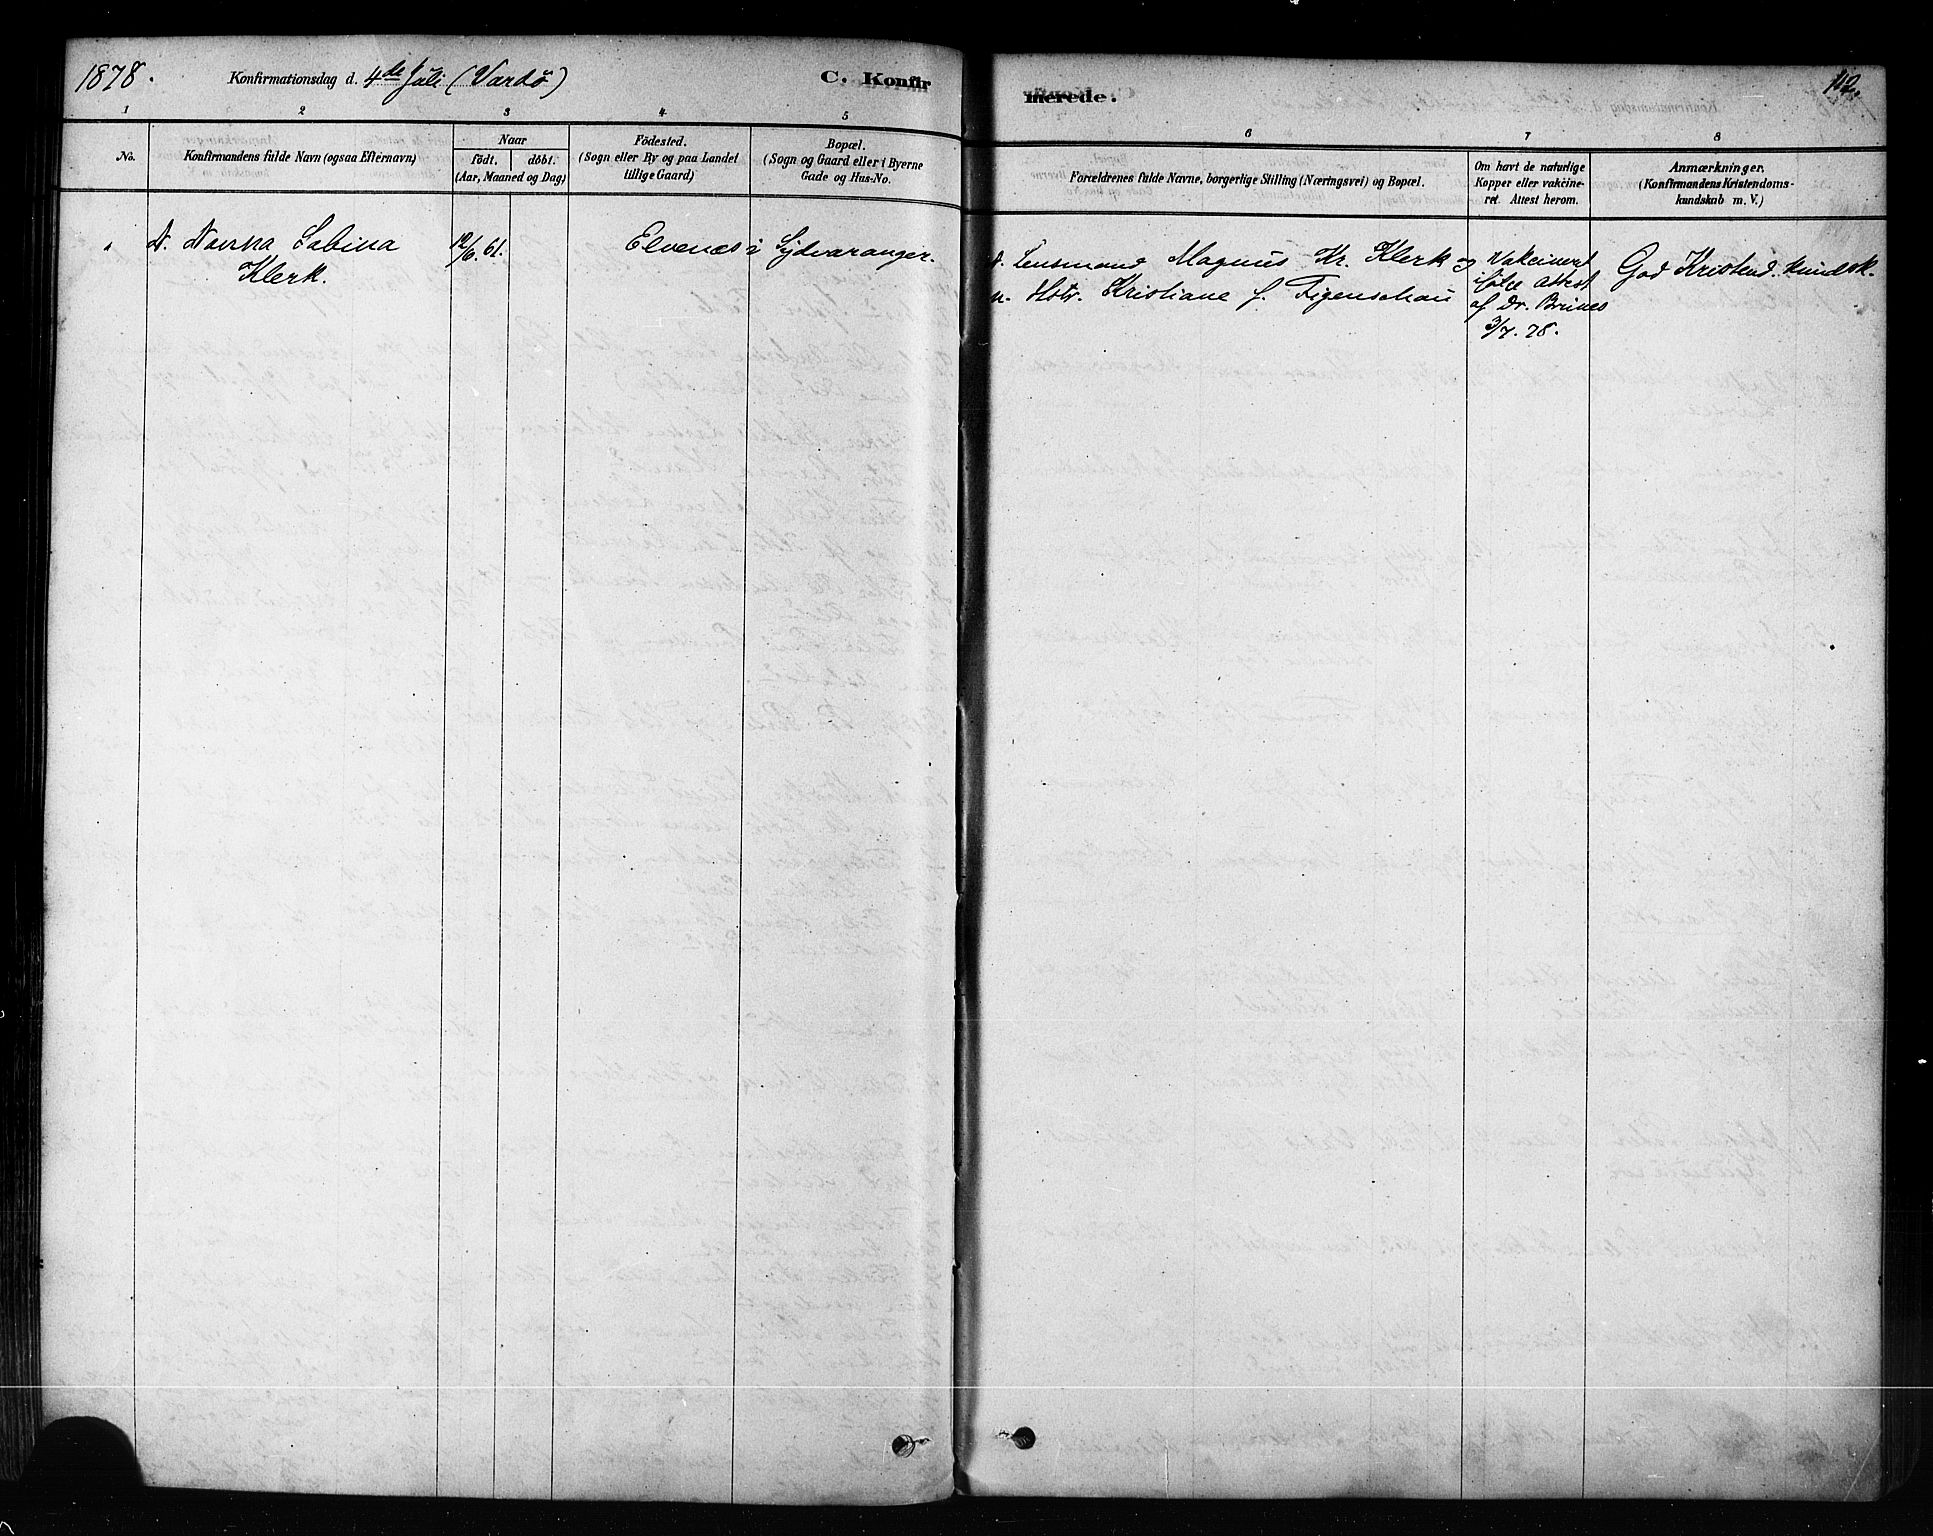 1878.
Konfirmationsdag d. 4de Juli (Vardö)
C. Konfir
merede.
112.
1
2
3
4
5
6
7
8
No.
Konfirmandens fulde Navn (ogsaa Efternavn)
Naar
födt.
döbt.
(Aar, Maaned og Dag)
Födested.
(Sogn eller By og paa Landet
tillige Gaard)
Bopæl.
(Sogn og Gaard eller i Byerne
Gade og Hus-No.
Forældrenes fulde Navne, borgerlige Stilling (Næringsvei) og Bopæl.
Om havt de naturlige
Kopper eller vakcine-
ret. Attest herom.
Anmærkninger.
(Konfirmandens Kristendoms-
kundskab m. V.)
N. Sabina
Klerk.
12/6. 61.
Elvenæs i Sydvaranger.
N. Lensmand Magnus Kr. Klerk og
n. Hstr. Kristiane f. Figenschau
Vakcinert
ifølge Attest
af Dr.
3/7. 78.
God Kristend. kundsk.